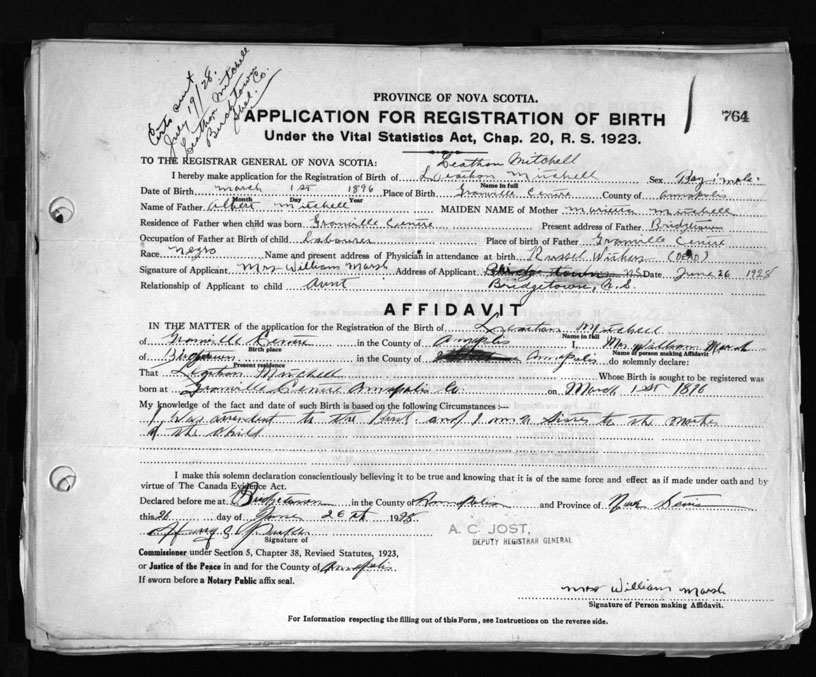 Certs sent
July 19/28.
Leathon Mitchell
Birchtown
Shel. Co.
PROVINCE OF NOVA SCOTIA.
APPLICATION FOR REGISTRATION OF BIRTH
764
Under the Vital Statistics Act, Chap. 20, R. S. 1923.
TO THE REGISTRAR GENERAL OF NOVA SCOTIA: Leathon Mitchell
I hereby make application for the Registration of Birth of Mitchell Sex male
Name in full
Date of Birth March 1st 1896 Place of Birth Granville Centre County of Annapolis
Month Day Year
Name of Father Albert Mitchell MAIDEN NAME of Mother Mitchell
Residence of Father when child was born Granville Centre Present address of Father Bridgetown
Occupation of Father at Birth of child Labourer Place of birth of Father Granville Centre
Race Negro Name and present address of Physician in attendance at birth Russel (DEAD)
Signature of Applicant Mrs William Marsh Address of Applicant N.S. Date June 26 1928
Relationship of Applicant to child Aunt Bridgetown, N.S.
AFFIDAVIT
IN THE MATTER of the application for the Registration of the Birth of Mitchell
of Granville Centre in the County of Annapolis I, Mrs William Marsh
Birth place Name of person making Affidavit
of in the County of Annapolis do solemnly declare:
Present residence
That Mitchell Whose Birth is sought to be registered was
born at Granville Centre Annapolis Co. on March 1st 1896
My knowledge of the fact and date of such Birth is based on the following Circumstances :—
I was attendent to the Birth and I am a Sister to the Mother
of the child
I make this solemn declaration conscientiously believing it to be true and knowing that it is of the same force and effect as if made under oath and by
virtue of The Canada Evidence Act.
Declared before me at Bridgetown in the County of Annapolis and Province of Nova Scotia
this 26 day of June 26th 1928
A. C. JOST,
DEPUTY REGISTRAR GENERAL
Signature of
Commissioner under Section 5, Chapter 38, Revised Statutes, 1923,
or Justice of the Peace in and for the County of Annapolis
If sworn before a Notary Public affix seal.
Mrs William Marsh
Signature of Person making Affidavit.
For Information respecting the filling out of this Form, see Instructions on the reverse side.